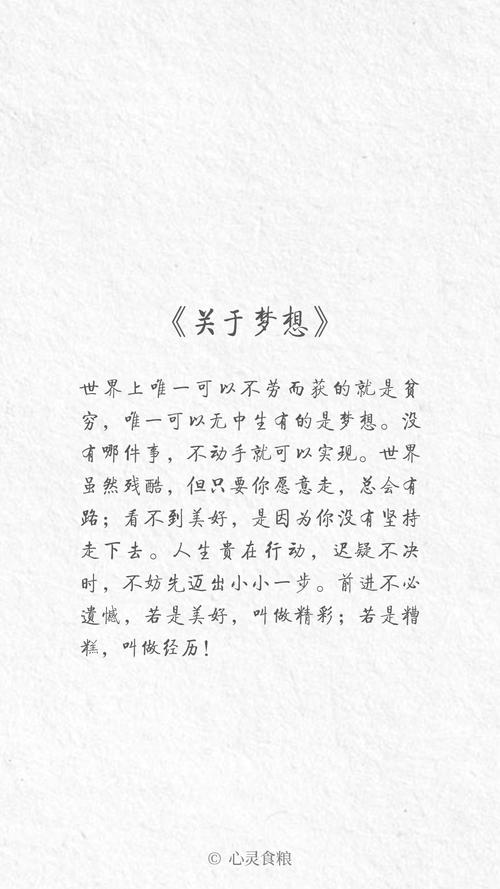 《关于梦想》
世界上唯一可以不劳而获的就是貧
穷，唯一可以无中生有的是梦想。没
有哪件事，不动手就可以实现。世界
虽然残酷，但只要你愿意走，总会有
路；看不到美好，是因为你没有坚持
走下去。人生貴在行动，迟疑不决
时，不妨先迈出小小一步。前进不必
遺憾，若是美好，叫做精彩；若是糟
糕，叫做经历！
© 心灵食粮